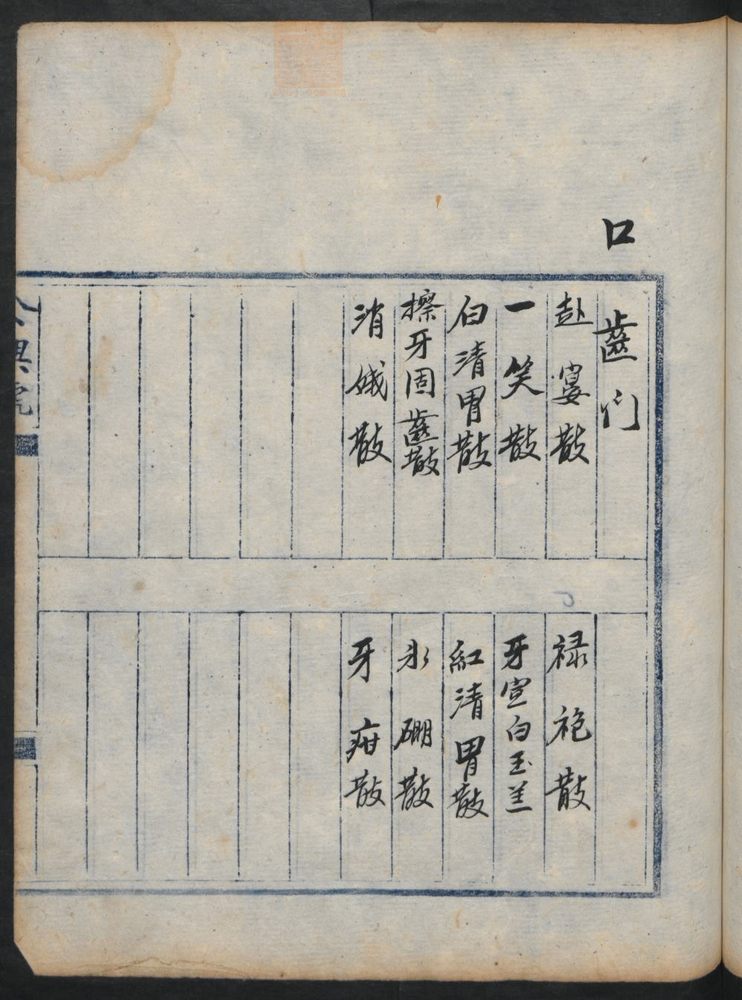 口
齒门
赴宴散
禄袍散
一笑散
牙宣白玉羔
白清胃散
紅清胃散
擦牙固齒散
氷硼散
消娥散
牙疳散